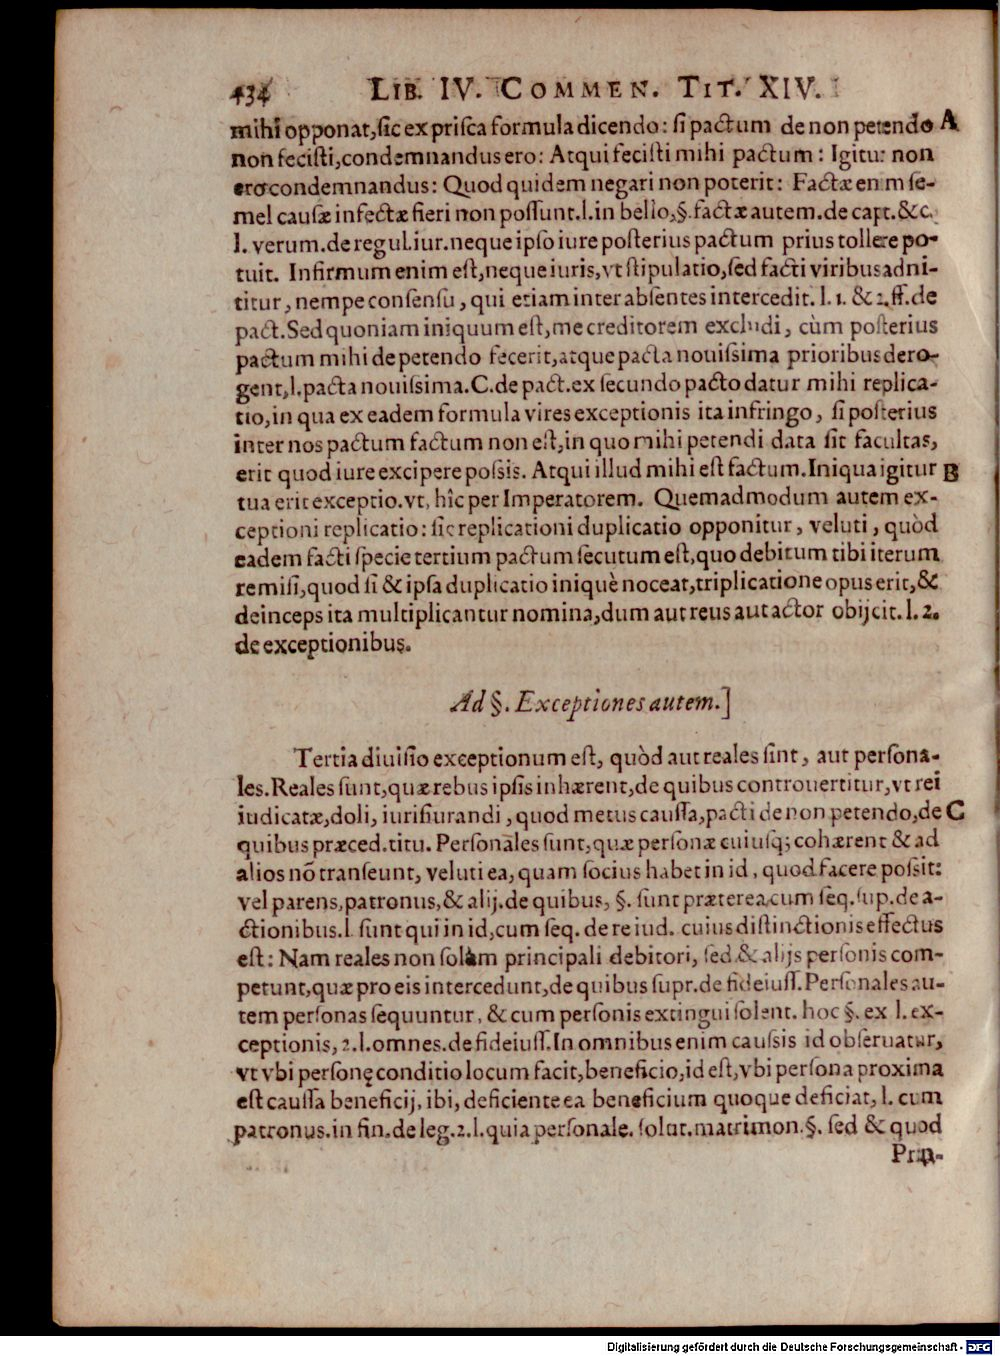 434 LIB. IV. COMMEN. TIT. XIV.
mihi opponat, sic ex prisca formula dicendo: si pactum de non petendo A
non fecisti, condemnandus ero: Atqui fecisti mihi pactum: Igitur non
ero condemnandus: Quod quidem negari non poterit: Factæ enim se-
mel causæ infectæ fieri non possunt. l. in bello, §. factæ autem. de capt. & c.
l. verum. de regul. iur. neque ipso iure posterius pactum prius tollere po-
tuit. Infirmum enim est, neque iuris, vt stipulatio, sed facti viribus adni-
titur, nempe consensu, qui etiam inter absentes intercedit. l. 1. & 2. ff. de
pact. Sed quoniam iniquum est, me creditorem excludi, cùm posterius
pactum mihi de petendo fecerit, atque pacta nouissima prioribus dero-
gent, l. pacta nouissima. C. de pact. ex secundo pacto datur mihi replica-
tio, in qua ex eadem formula vires exceptionis ita infringo, si posterius
inter nos pactum factum non est, in quo mihi petendi data sit facultas,
erit quod iure excipere possis. Atqui illud mihi est factum. Iniqua igitur B
tua erit exceptio. vt, hîc per Imperatorem. Quemadmodum autem ex-
ceptioni replicatio: sic replicationi duplicatio opponitur, veluti, quòd
eadem facti specie tertium pactum secutum est, quo debitum tibi iterum
remisi, quod si & ipsa duplicatio iniquè noceat, triplicatione opus erit, &
deinceps ita multiplicantur nomina, dum aut reus aut actor obijcit. l. 2.
de exceptionibus.
Ad §. Exceptiones autem.]
Tertia diuisio exceptionum est, quòd aut reales sint, aut persona-
les. Reales sunt, quæ rebus ipsis inhærent, de quibus controuertitur, vt rei
iudicatæ, doli, iurisiurandi, quod metus caussa, pacti de non petendo, de C
quibus præced. titu. Personales sunt, quæ personæ cuiusq; cohærent & ad
alios nō transeunt, veluti ea, quam socius habet in id, quod facere possit:
vel parens, patronus, & alij. de quibus, §. sunt præterea, cum seq. sup. de a-
ctionibus. l. sunt qui in id, cum seq. de re iud. cuius distinctionis effectus
est: Nam reales non solùm principali debitori, sed & alijs personis com-
petunt, quæ pro eis intercedunt, de quibus supr. de fideiuss. Personales au-
tem personas sequuntur, & cum personis extingui solent. hoc §. ex l. ex-
ceptionis, 2. l. omnes. de fideiuss. In omnibus enim caussis id obseruatur,
vt vbi personę conditio locum facit, beneficio, id est, vbi persona proxima
est caussa beneficij, ibi, deficiente ea beneficium quoque deficiat, l. cum
patronus. in fin. de leg. 2. l. quia personale. solut. matrimon. §. sed & quod
Digitalisierung gefördert durch die Deutsche Forschungsgemeinschaft - DFG